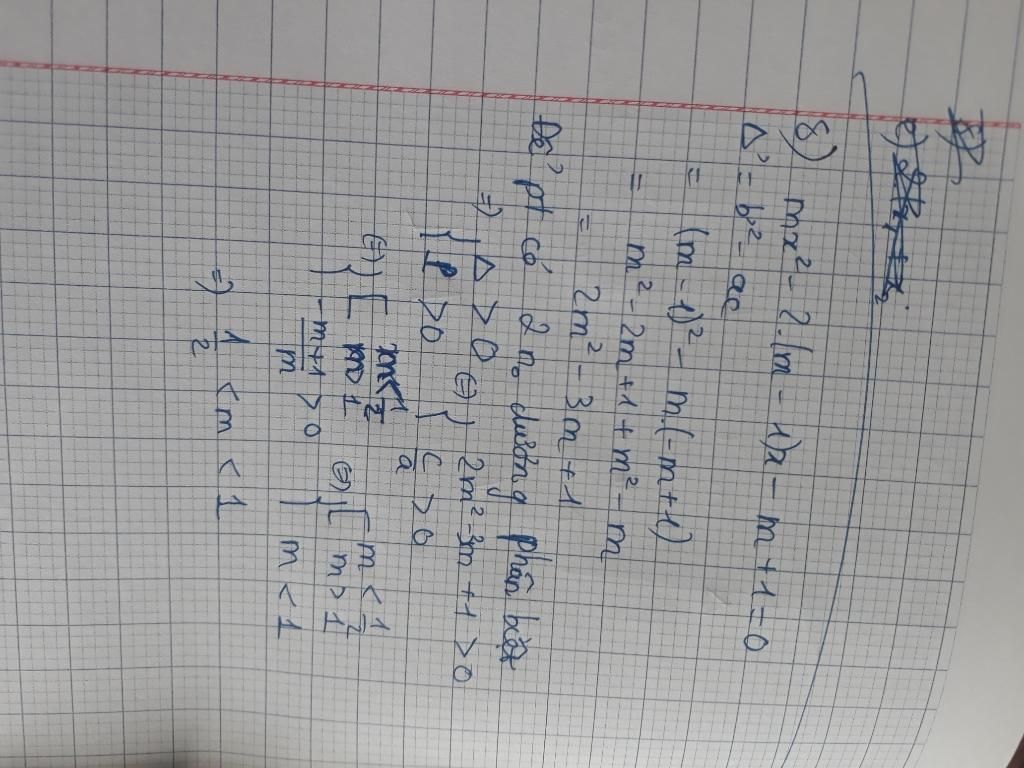 8) mx² - 2.(m - 1)x - m + 1 = 0
Δ' = b² - ac
= (m - 1)² - m.(-m + 1)
= m² - 2m + 1 + m² - m
= 2m² - 3m + 1
Để pt có 2 no dương phân biệt
=> { Δ > 0 ⇔ { 2m² - 3m + 1 > 0
P > 0 c/a > 0
⇔ { [ m < 1/2 ⇔ { [ m < 1/2
m > 1 m > 1
-m+1/m > 0 m < 1
=> 1/2 < m < 1